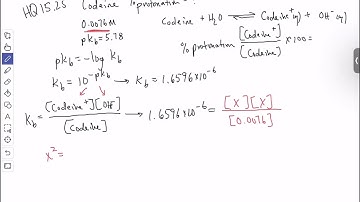 HQ 15.25 Codeine % protonation
0.0076M Codeine + H₂O ⇌ Codeine⁺(aq) + OH⁻(aq)
pKb = 5.78 % protonation [Codeine⁺] / [Codeine] × 100 =
pKb = -log Kb
Kb = 10^-pKb → Kb = 1.6596×10⁻⁶
Kb = [Codeine⁺][OH⁻] / [Codeine] → 1.6596×10⁻⁶ = [X][X] / [0.0076]
x² =